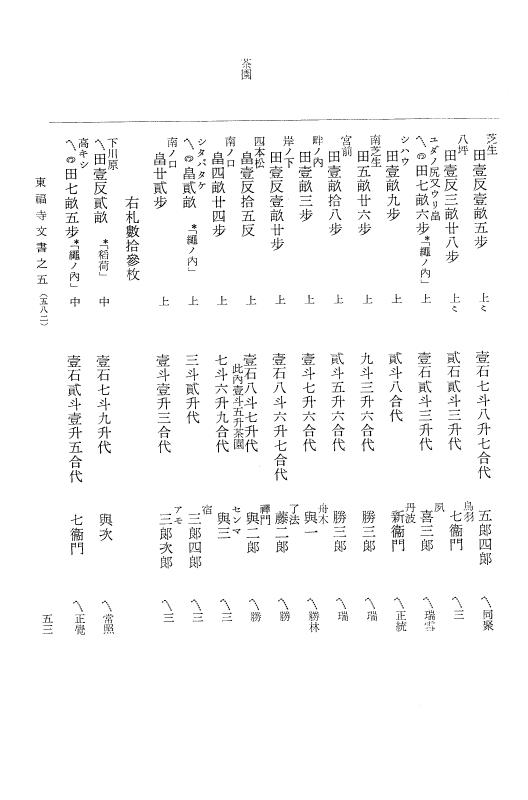 茶園
芝生
田壹反壹畝五步 上ミ 壹石七斗八升七合代 五郎四郎 〽同聚
八坪
田壹反三畝廿八步 上ミ 貳石貳斗三升代 鳥羽 七衞門 〽三
ユダノ尻又ウリ畠
〽の田七畝六步 *「繩ノ內」 上 壹石貳斗三升代 夙 喜三郎 〽瑞雲
シハウ
田壹畝九步 上 貳斗八合代 丹波 新衞門 〽正統
南芝生
田五畝廿六步 上 九斗三升六合代 勝三郎 〽瑞
宮前
田壹畝拾八步 上 貳斗五升六合代 勝三郎 〽瑞
畔ノ內
田壹畝三步 上 壹斗七升六合代 舟木 與一 〽勝林
岸ノ下
田壹反壹畝廿步 上 壹石八斗六升七合代 了法 藤二郎 〽勝
四本松
畠壹反拾五反 中 壹石八斗七升代 禪門 與二郎 〽勝
此內壹斗五升茶園
南ノ口
畠四畝廿四步 上 七斗六升九合代 センマ 與三 〽三
シタバタケ
〽の畠貳畝 *「繩ノ內」 上 三斗貳升代 宿 三郎四郎 〽三
南ノ口
畠廿貳步 上 壹斗壹升三合代 アモ 三郎次郎 〽三
右札數拾參枚
下川原
〽田壹反貳畝 *「稻荷」 中 壹石七斗九升代 與次 〽常照
高キシ
〽の田七畝五步 *「繩ノ內」 中 壹石貳斗壹升五合代 七衞門 〽正覺
東福寺文書之五(五八二)
五三